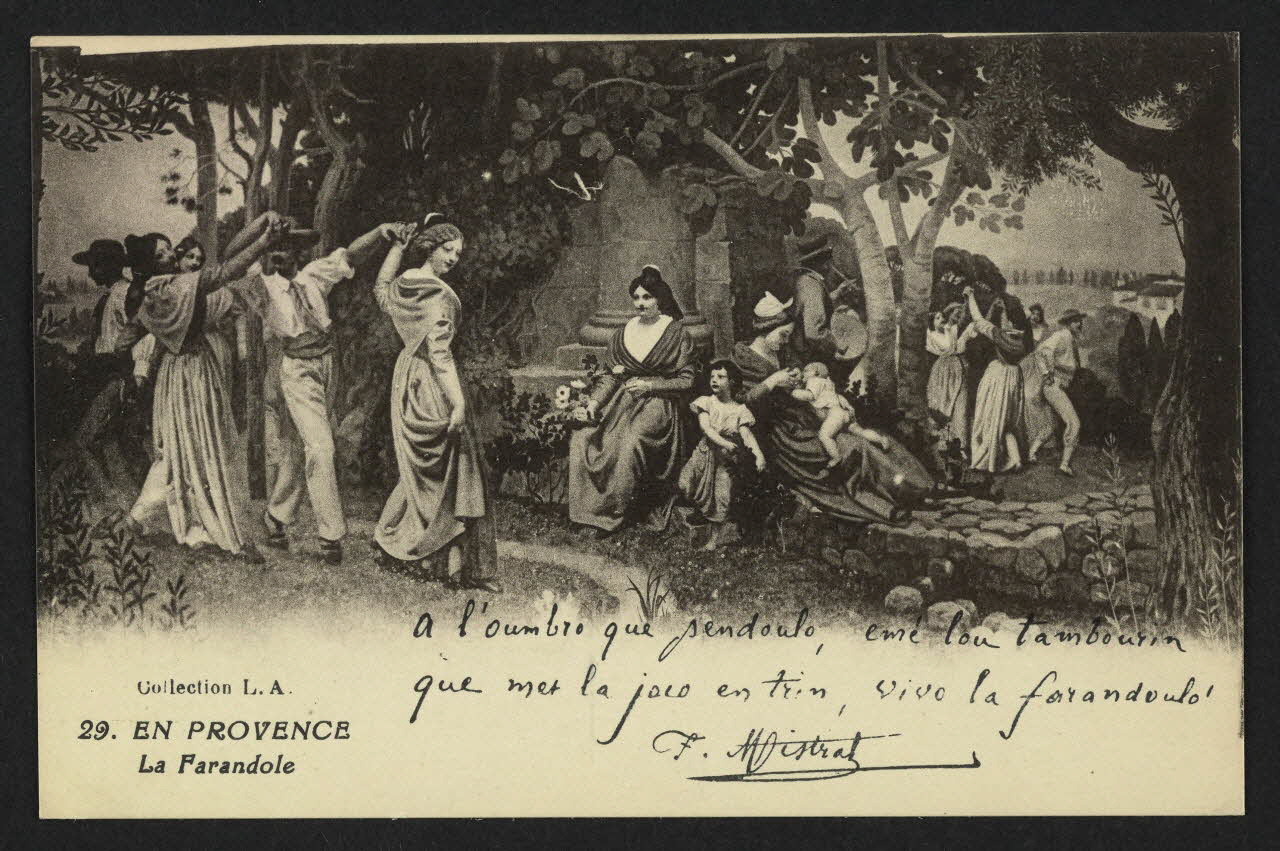 A l'oumbro que pendoulo, emé lou tambourin
que met la joio en trin, vivo la farandoulo!
F. Mistral
Collection L. A.
29. EN PROVENCE
La Farandole